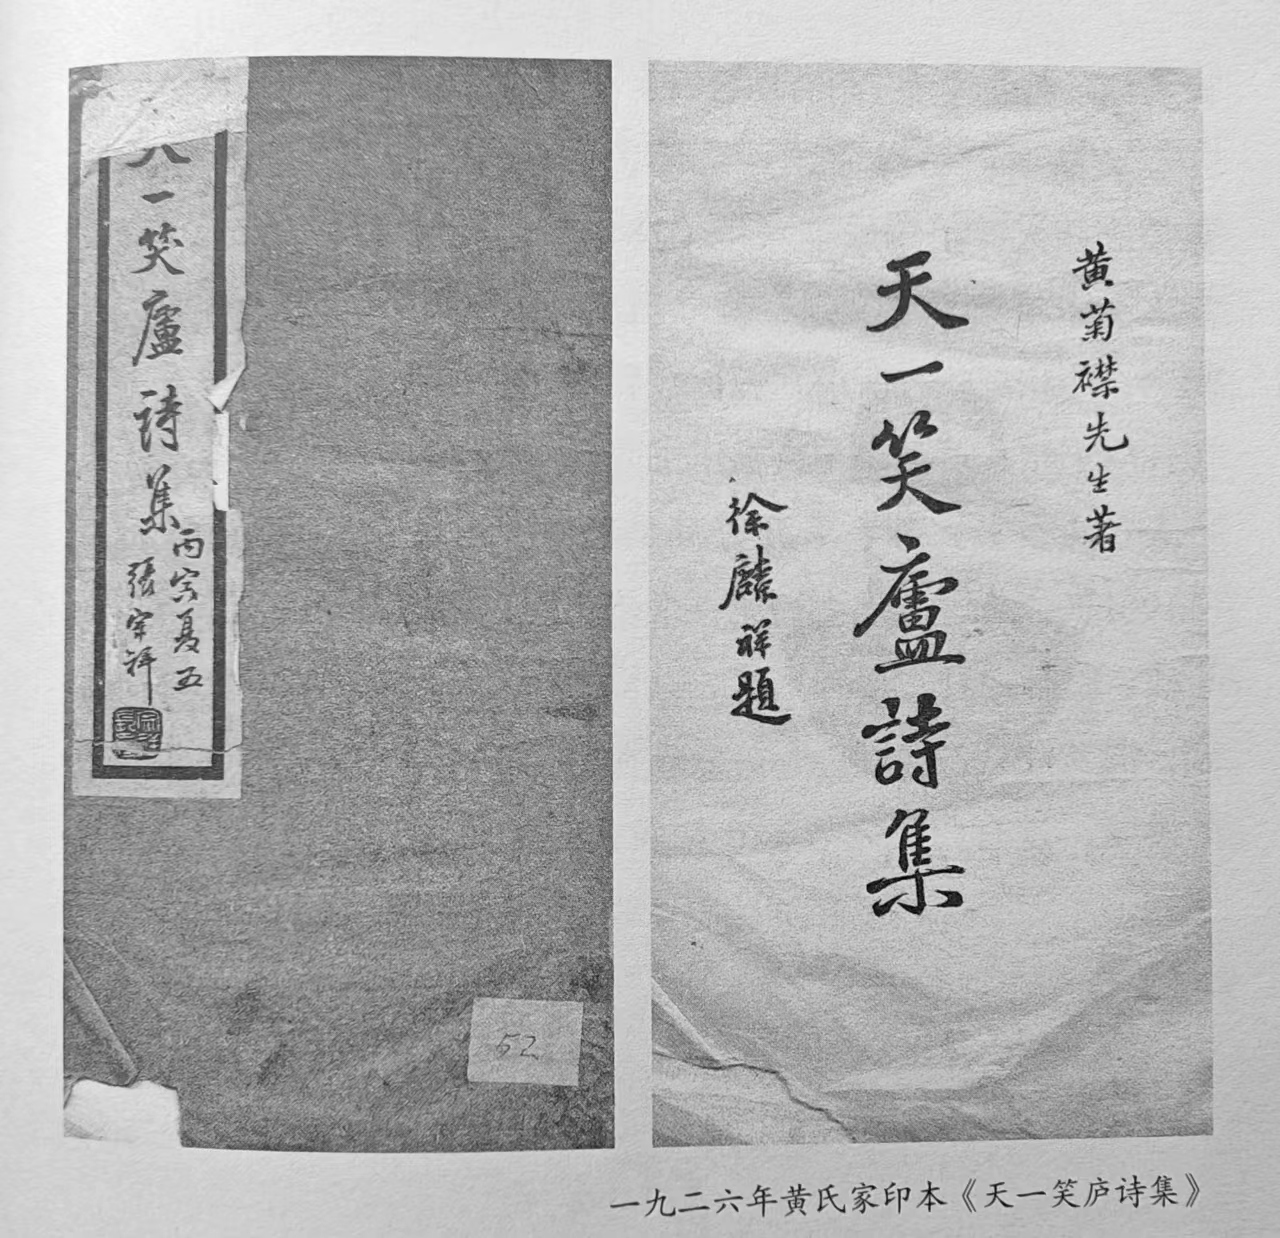 天一笑廬詩集
丙寅夏五
張宗祥
52
黄菊襟先生著
天一笑廬詩集
徐麟祥題
一九二六年黄氏家印本《天一笑庐诗集》